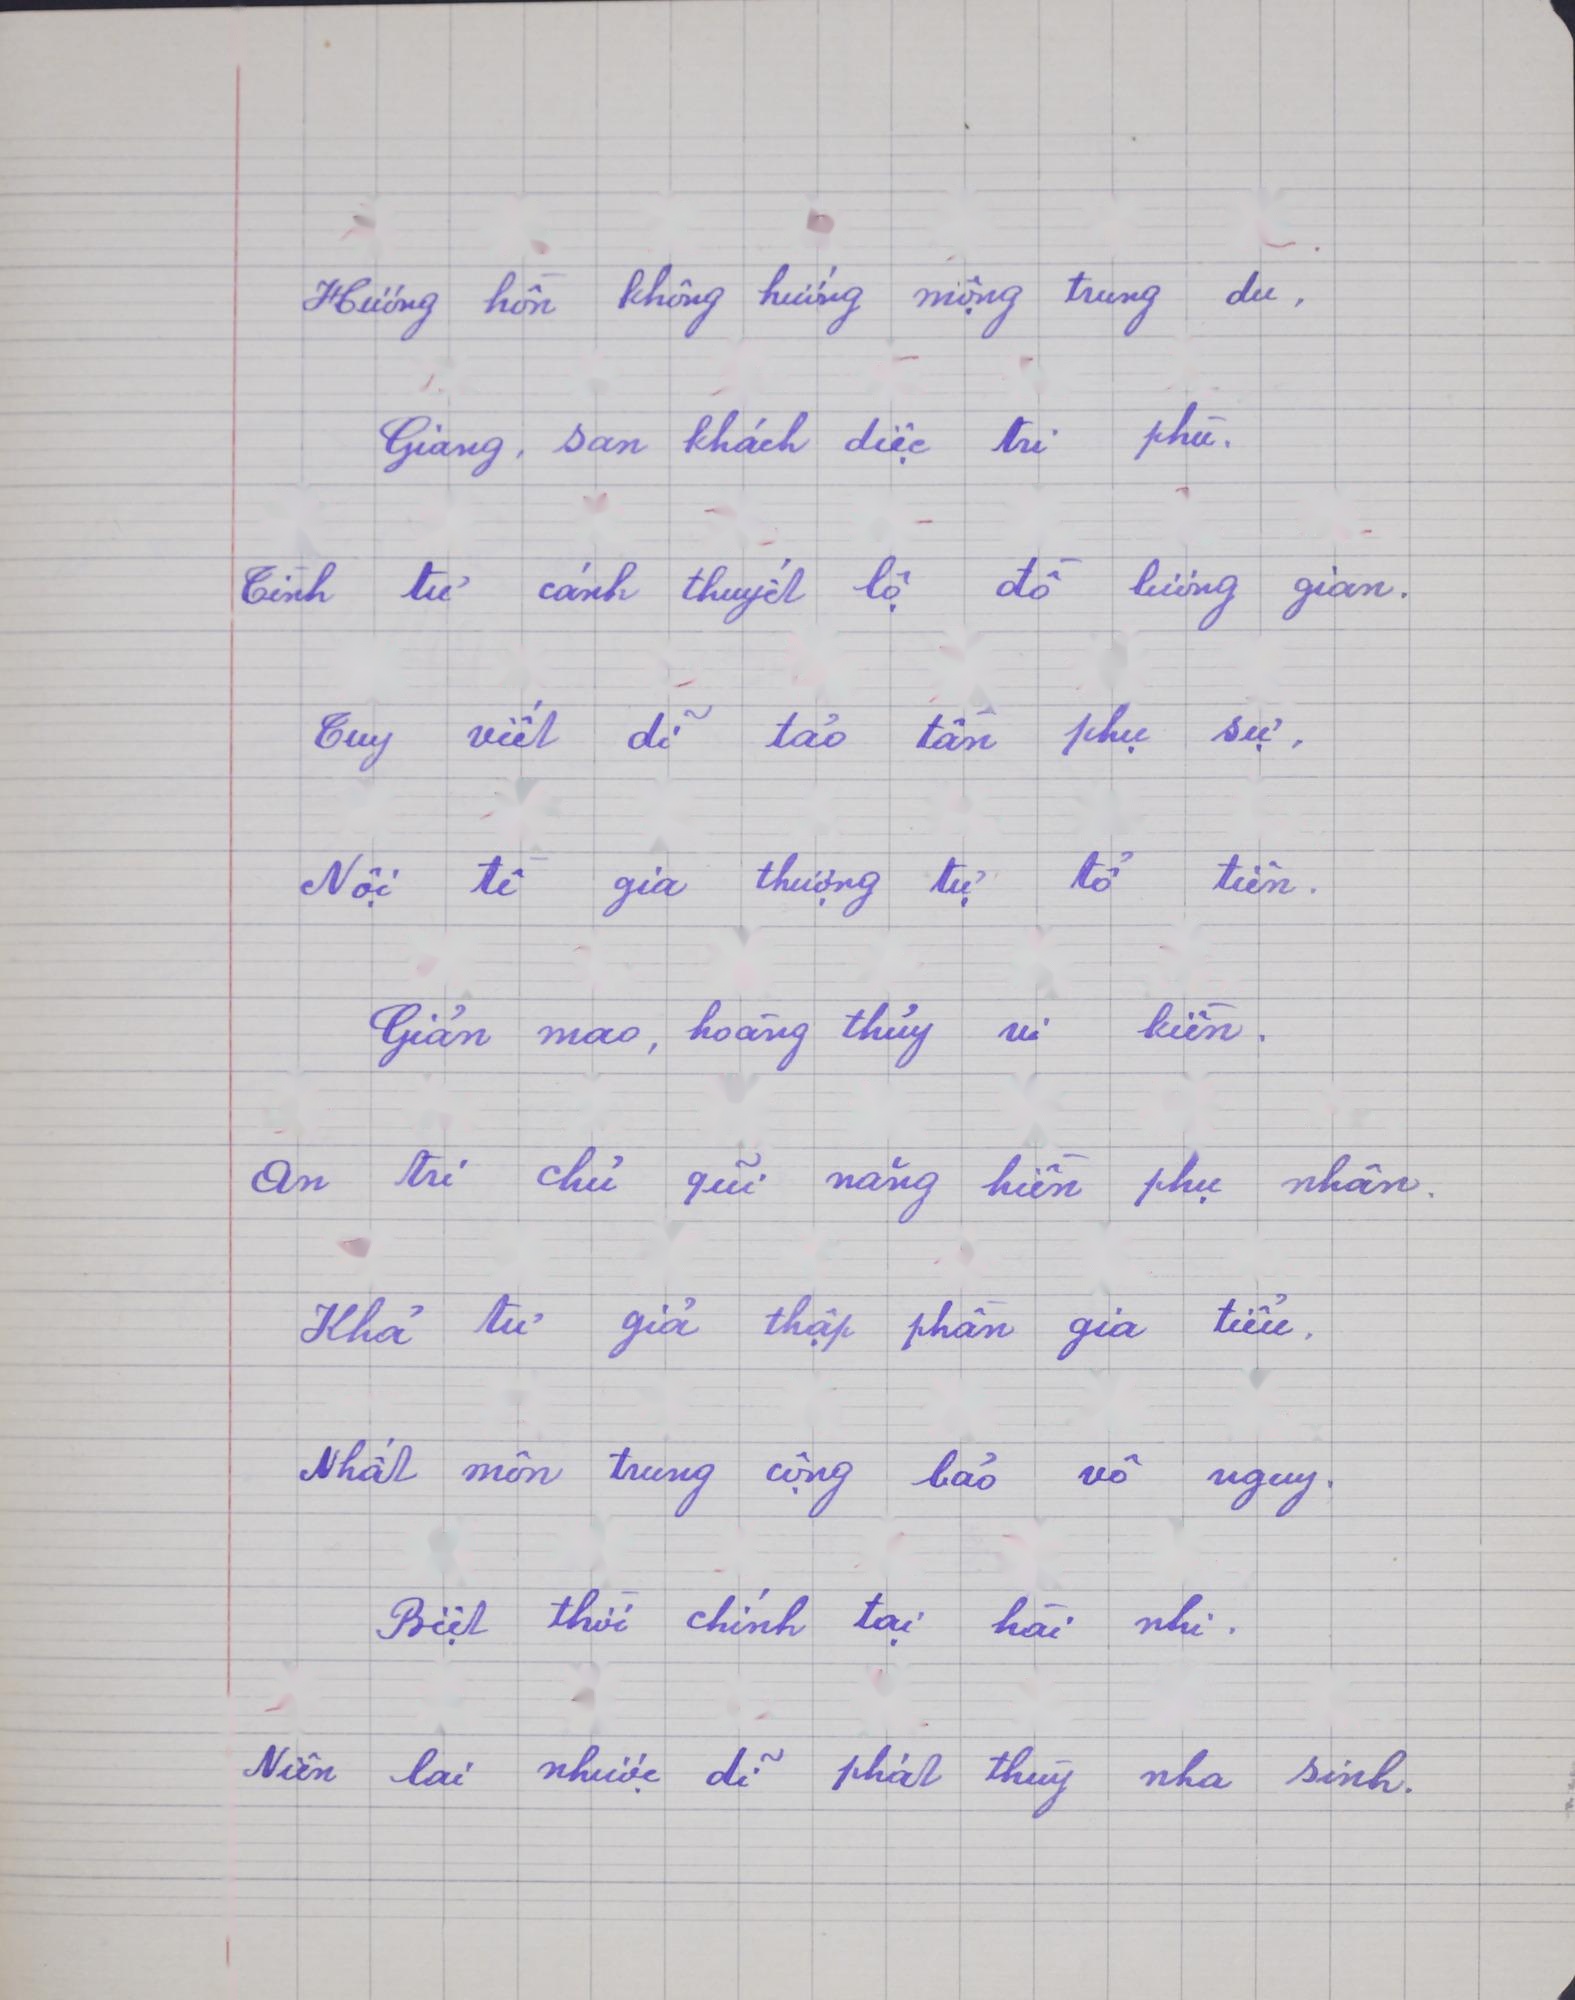 Hương hồn không hướng mộng trung du,
Giang, san khách diệc tri phù.
Tình tư cánh thuyết lộ đồ lương gian.
Tuy viết dĩ tảo tần phụ sự,
Nội tề gia thượng tự tổ tiên.
Giản mao, hoàng thủy vi kiền.
An tri chủ quĩ năng hiền phụ nhân.
Khả tư giả thập phần gia tiểu,
Nhất môn trung cộng bảo vô nguy.
Biệt thời chính tại hài nhi.
Niên lai nhược dĩ phát thùy nha sinh.